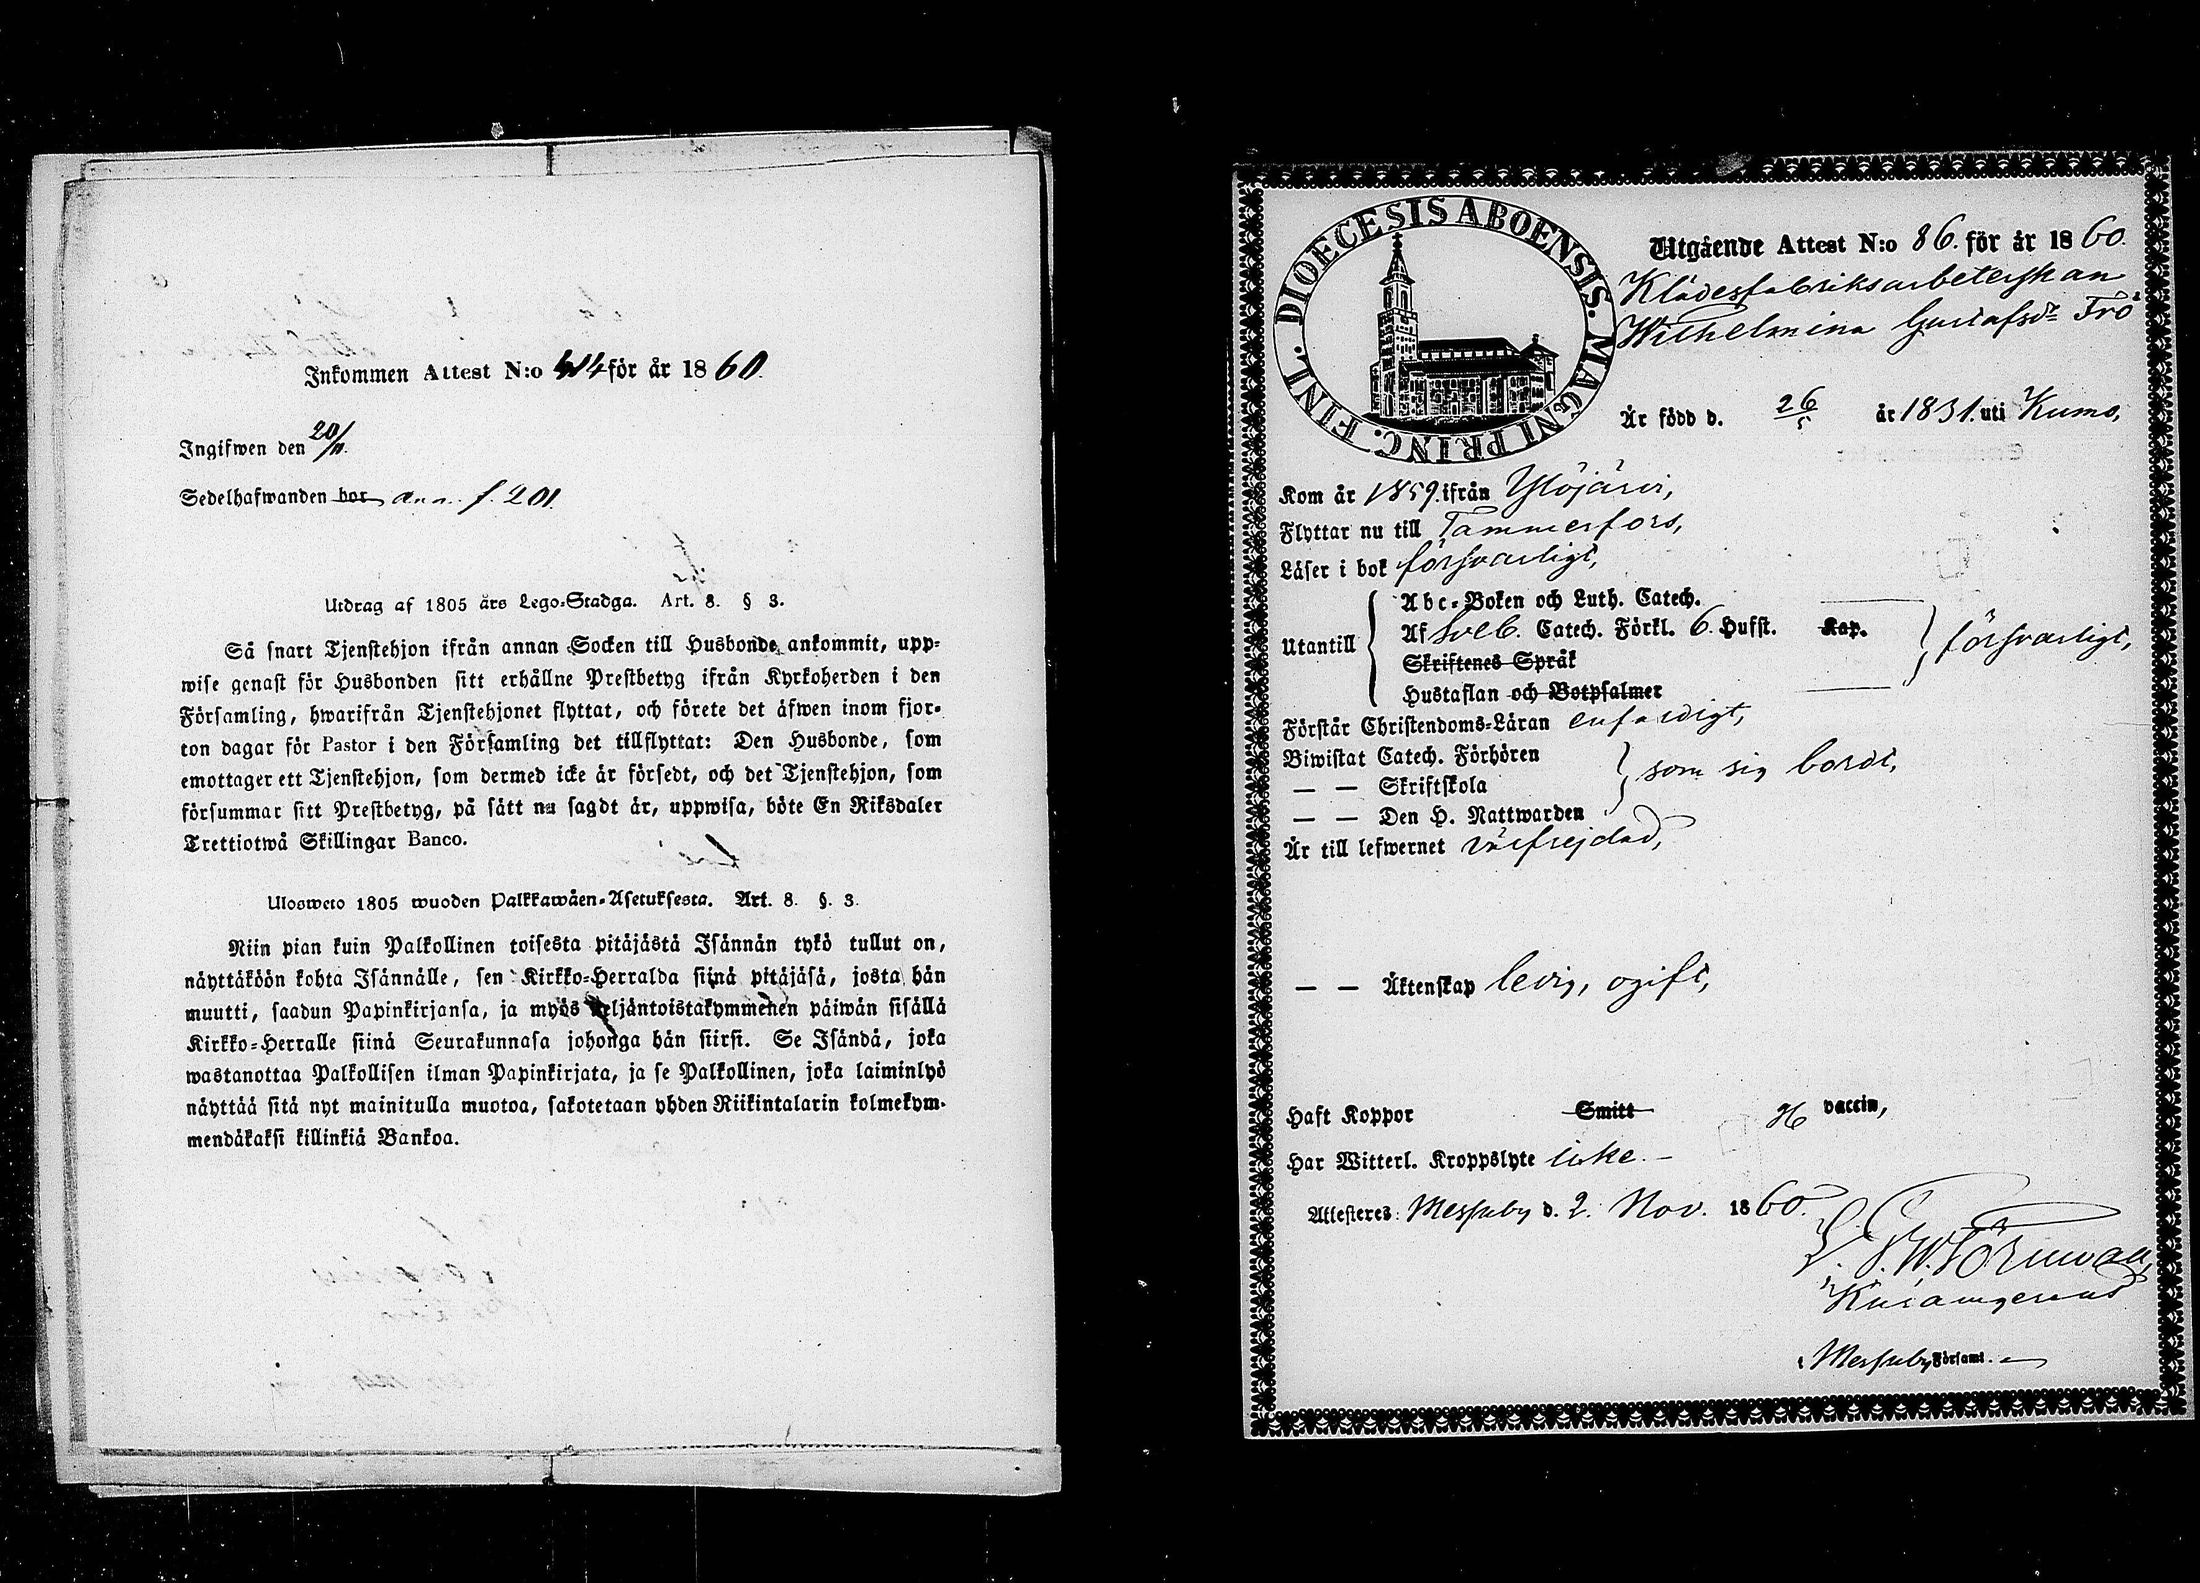 Inkommen Attest N:o 414 för år 1860.
Ingifwen den 20/11.
Sedelhafwanden bor ann. f. 201.
Utdrag af 1805 års Lego-Stadga. Art. 8. § 3.
Så snart Tjenstehjon ifrån annan Socken till Husbonde ankommit, upp-
wise genast för Husbonden sitt erhållne Prestbetyg ifrån Kyrkoherden i den
Församling, hwarifrån Tjenstehjonet flyttat, och förete det äfwen inom fjor-
ton dagar för Pastor i den Församling det tillflyttat: Den Husbonde, som
emottager ett Tjenstehjon, som dermed icke är försedt, och det Tjenstehjon, som
försummar sitt Prestbetyg, på sätt nu sagdt är, uppwisa, böte En Riksdaler
Trettiotwå Skillingar Banco.
Ulosweto 1805 wuoden Palkkawäen-Asetuksesta. Art. 8. §. 3.
Niin pian kuin Palkollinen toisesta pitäjästä Isännän tykö tullut on,
näyttäköön kohta Isännälle, sen Kirkko-Herralda siinä pitäjäsä, josta hän
muutti, saadun Papinkirjansa, ja myös neljäntoistakymmenen päiwän sisällä
Kirkko-Herralle siinä Seurakunnasa johonga hän siirsi. Se Isändä, joka
wastanottaa Palkollisen ilman Papinkirjata, ja se Palkollinen, joka laiminlyö
näyttää sitä nyt mainitulla muotoa, sakotetaan yhden Riikintalarin kolmekym-
mendäkaksi killinkiä Bankoa.
DIOECESIS ABOENSIS. MAGNI PRINC. FINL.
Utgående Attest N:o 86. för år 1860.
Klädesfabriksarbeterskan
Wilhelmina Gustafsdr Frö
Är född d. 26/5 år 1831. uti Kumo,
Kom år 1859. ifrån Ylöjärvi,
Flyttar nu till Tammerfors,
Läser i bok försvarligt,
Utantill
Abc-Boken och Luth. Catech.
Af Sveb. Catech. Förkl. 6. Hufst. Kap.
Skriftenes Språk
Hustaflan och Botpsalmer
försvarligt,
Förstår Christendoms-Läran enfaldigt,
Biwistat Catech. Förhören
— — Skriftskola
— — Den H. Nattwarden
som sig bordt,
Är till lefwernet välfrejdad,
— — Äktenskap ledig, ogift,
Haft Koppor Smitt vaccin,
Har Witterl. Kroppslyte icke. —
Attesteres: Messuby d. 2. Nov. 1860.
i Messuby Församl.